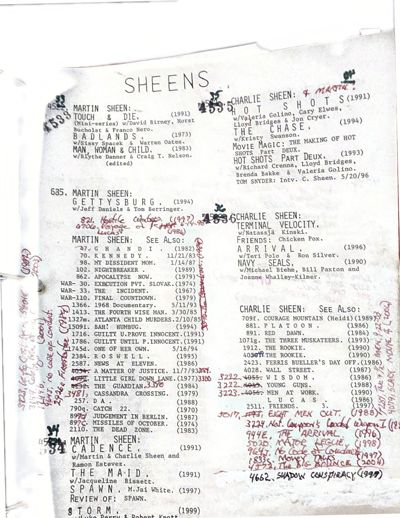 SHEENS
4533
MARTIN SHEEN:
TOUCH & DIE. (1991)
(Mini-series) w/David Birney, Horst
Bucholst & Franco Nero.
BADLANDS. (1973)
w/Sissy Spacek & Warren Oates.
MAN, WOMAN & CHILD. (1983)
w/Blythe Danner & Craig T. Nelson.
(edited)
635. MARTIN SHEEN:
GETTYSBURG. (1994)
w/Jeff Daniels & Tom Berringer.
MARTIN SHEEN: See Also:
47. GHANDI. (1982)
70. KENNEDY. 11/21/83
98. MY DISSIDENT MOM. 1/14/87
102. NIGHTBREAKER. (1989)
862. APOCALYPSE NOW. (1979)
WAR- 30. EXECUTION PVT. SLOVAK.(1974)
WAR- 33. THE INCIDENT. (1967)
WAR-110. FINAL COUNTDOWN. (1979)
1366. 1968 Documentary 5/11/93
1413. THE FOURTH WISE MAN. 3/30/85
1327m. ATLANTA CHILD MURDERS.2/10/80
1509. BAH! HUMBUG. (1994)
1716. GUILTY U.PROVE INNOCENT.(1991)
1786. GUILTY UNTIL P.INNOCENT.(1991)
1754. ONE OF HER OWN. 5/16/94
2384. ROSWELL. (1995)
2587. NEWS AT ELEVEN. (1986)
A MATTER OF JUSTICE. 11/7/93
LITTLE GIRL DOWN LANE.(1977)
THE GUARDIAN.
CASSANDRA CROSSING. (1979)
257. DA. (1988)
790g. CATCH 22. (1970)
JUDGEMENT IN BERLIN. (1987)
MISSILES OF OCTOBER. (1974)
2110. THE DEAD ZONE. (1983)
MARTIN SHEEN:
CADENCE. (1991)
w/Martin & Charlie Sheen and
Ramon Estevez.
THE MAID. (1991)
w/Jacqueline Bissett.
SPAWN. M.Jai White. (1997)
REVIEW OF: SPAWN.
STORM. (1999)
w/Luke Perry & Robert Knott
4535
CHARLIE SHEEN: & MARTIN:
HOT SHOTS (1991)
w/Valeria Golino, Cary Elwes,
Lloyd Bridges & Jon Cryer.
THE CHASE. (1994)
w/Kristy Swanson.
MOVIE MAGIC: THE MAKING OF HOT
SHOTS PART DEUX.
HOT SHOTS PART DEUX. (1993)
w/Richard Crenna, Lloyd Bridges,
Brenda Bakke & Valeria Golino.
TOM SNYDER: Intv. C. Sheen. 5/20/96
4536
CHARLIE SHEEN:
TERMINAL VELOCITY.
w/Natassja Kinski.
FRIENDS: Chicken Pox.
ARRIVAL. (1996)
w/Teri Polo & Ron Silver.
NAVY SEALS. (1990)
w/Michael Biehn, Bill Paxton and
Joanne Whalley-Kilmer.
CHARLIE SHEEN: SEE ALSO:
709f. COURAGE MOUNTAIN (Heidi)(1989)
881. PLATOON. (1986)
891. RED DAWN. (1984)
1071g. THE THREE MUSKATEERS. (1993)
1912. THE ROOKIE. (1990)
THE ROOKIE. (1990)
2423. FERRIS BUELLER'S DAY OFF.(1986)
4028. WALL STREET. (1987)
3222. WISDOM. (1986)
3222. YOUNG GUNS. (1988)
3223. MEN AT WORK. (1990)
LUCAS. (1986)
2511. FRIENDS.
3017. EIGHT MEN OUT (1988)
9942. THE ARRIVAL (1996)
5020 MAJOR LEGUE (1998)
9647. No Code of Conduct (1997)
7833. MONEY TALKS (1997)
4373. THE BIG BOUNCE (2004)
4662. SHADOW CONSPIRACY (1997)